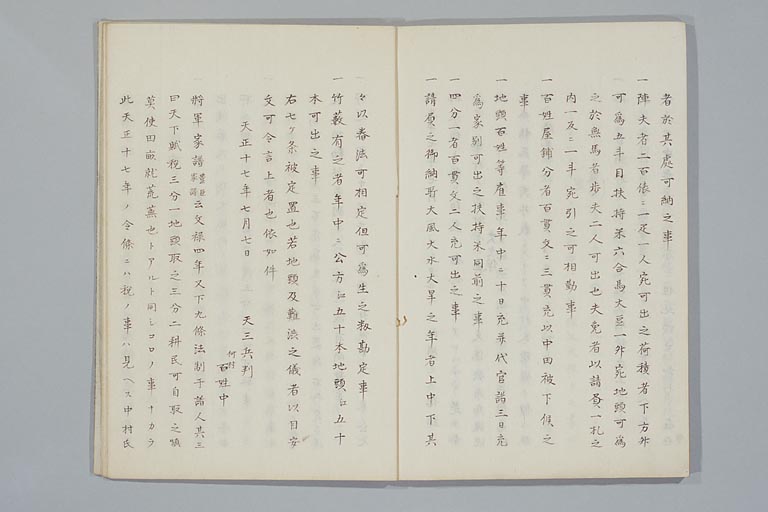 者於其處可納之事
一陣夫者二百俵ニ一疋一人宛可出之荷積者下方升
可為五斗目扶持米六合馬大豆一升宛地頭可為
之於無馬者歩夫二人可出也夫免者以請負一札之
内一反ニ一斗宛引之可相勤事
一百姓屋鋪分者百貫文ニ三貫宛以中田被下候之
事
一地頭百姓等雇事年中ニ十日宛并代官諸三日宛
為家別可出之扶持米同前之事
一四分一者百貫文二人宛可出之事
一請負之御納所大風大水大旱之年者上中下共
ニ以舂法可相定但可為生之籾勘定事
一竹藪有之者年中ニ公方江五十本地頭江五十
本可出之事
右七ケ条被定置也若地頭及難渋之儀者以目安
文可令言上者也依如件
天正十七年七月七日 天三兵判
何村
百姓中
将軍家譜云文禄四年又下九條法制于諸人其三
曰天下賦税三分一地頭取之三分二耕民可自取之慎
莫使田畝就荒蕪也トアルト同シコロノ事ナカラ
此天正十七年ノ令條ニハ税ノ事ハ見ヘス中村氏